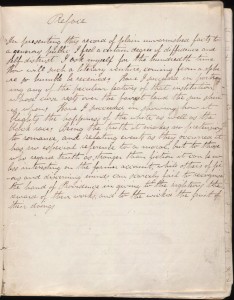 Preface
In presenting this record of plain unvarnished facts to
a generous public I feel a certain degree of diffidence and
self-distrust. I ask myself for the hundredth time
how will such a literary venture, coming from a sphere
so humble be received? Have I succeeded in portray-
ing any of the peculiar features of that institution
whose curse rests over the fairest land the sun shines
upon? Have I succeeded in showing how it
blights the happiness of the white as well as the
black race? Being the truth it makes no pretensions
to romance, and relating events as they occurred it
has no especial reference to a moral, but to those
who regard truth as stranger than fiction it can be no
less interesting on the former account, while others of
pious and discerning minds can scarcely fail to recognise
the hand of Providence in giving to the righteous the
reward of their works, and to the wicked the fruit of
their doings